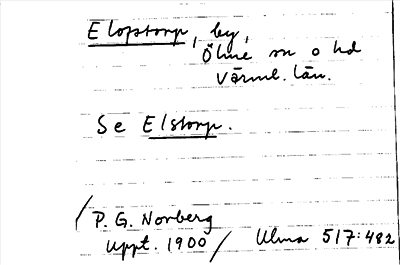 Elopstorp, by,
Ölme sn o hd
Värml. län.
Se Elstorp.
P. G. Norberg
Uppt. 1900 / Ulma 517:482